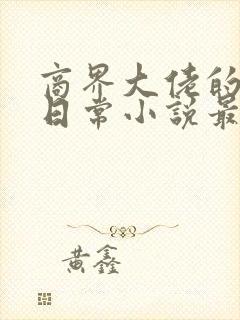 商界大佬的
日常小说最
黄鑫